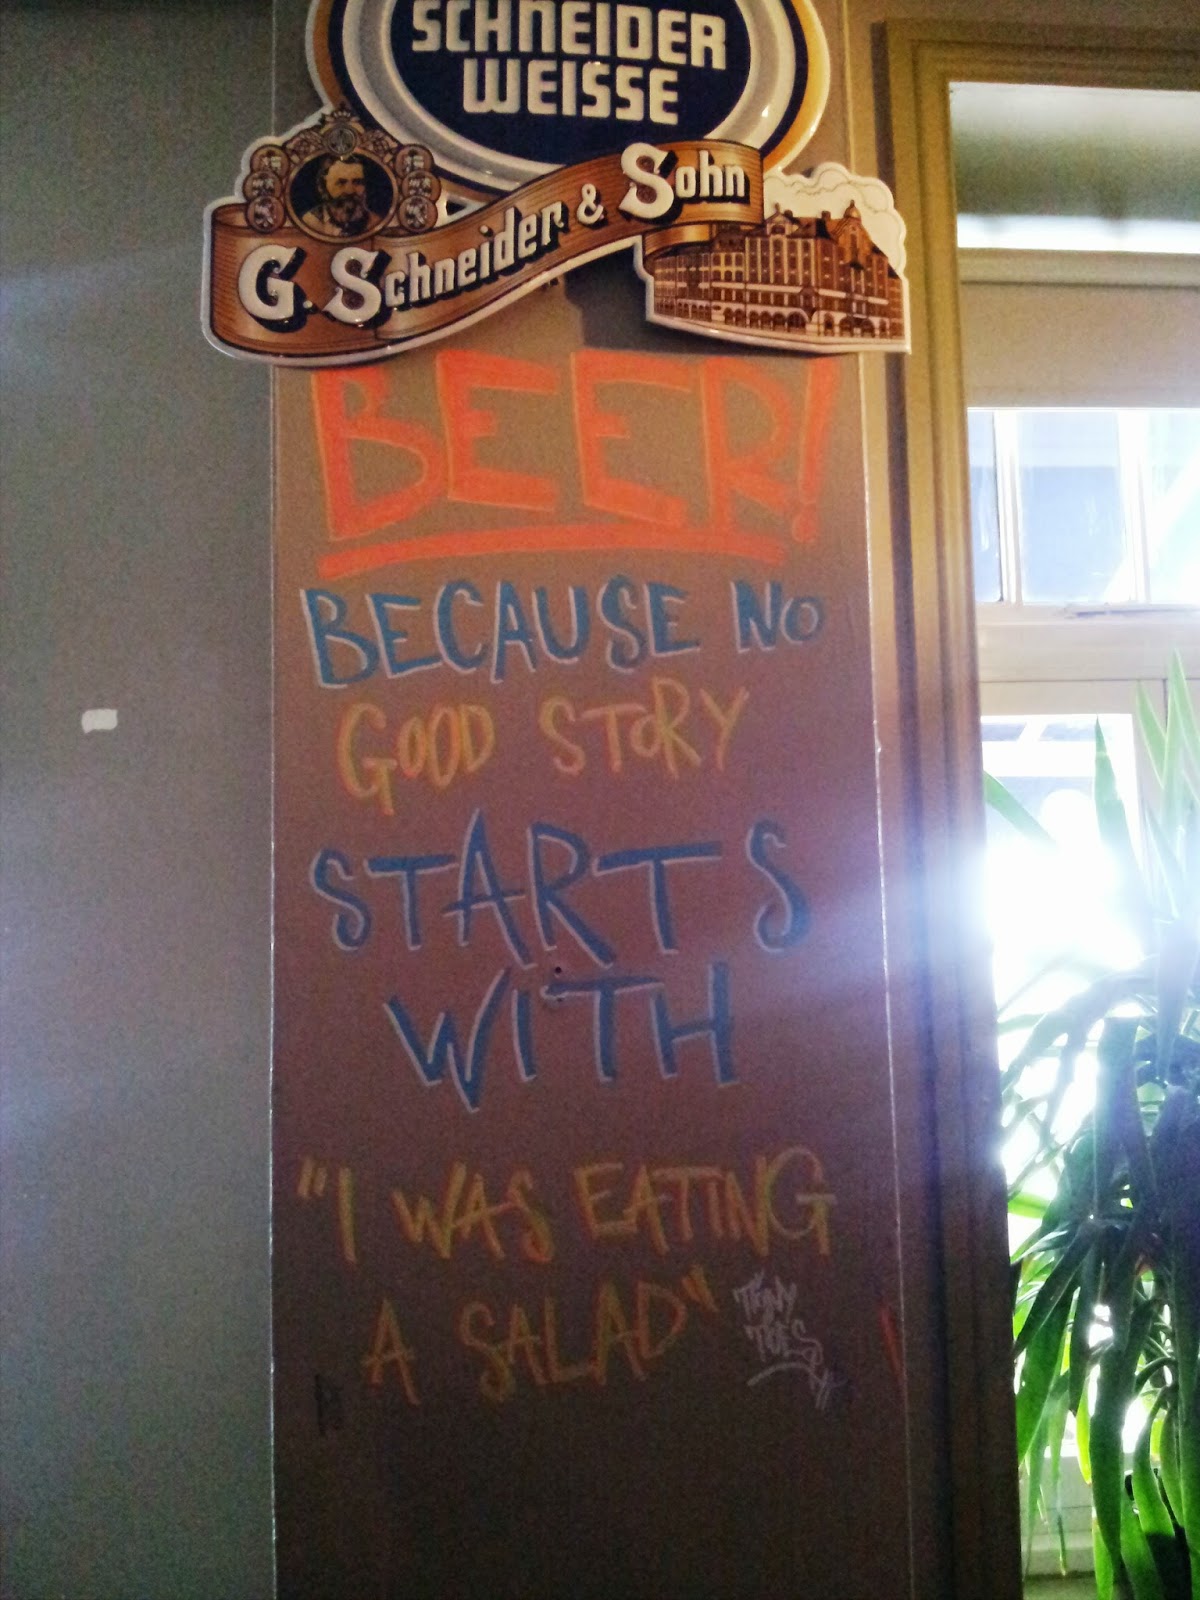 SCHNEIDER
WEISSE
G. Schneider & Sohn
BEER!
BECAUSE NO
GOOD STORY
STARTS
WITH
"I WAS EATING
A SALAD"